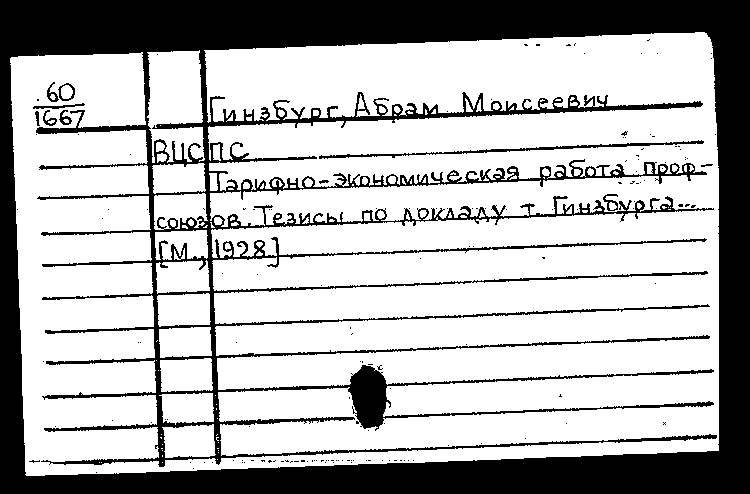 60
1667
Гинзбург, Абрам Моисеевич
ВЦСПС
Тарифно-экономическая работа проф-
союзов. Тезисы по докладу т. Гинзбурга...
[М., 1928]